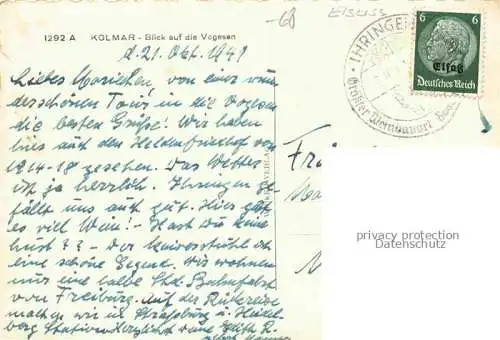 -68 Elsass
1292 A KOLMAR - Blick auf die Vogesen
d. 21. Okt. 1941
Liebes Mariechen, von einer wun
derschönen Tour in die Vogesen
die besten Grüße! Wir haben
hier auch den Heldenfriedhof von
1914-18 gesehen. Das Wetter
ist ja herrlich. Ihringen ge
fällt uns auch gut. Hier gibt
es viel Wein! - Hast du keine
Lust?? - Der Kaiserstuhl ist
eine schöne Gegend. Wir wohnen
nur eine halbe Std. Bahnfahrt
von Freiburg. Auf der Rückreise
machen wir in Straßburg u. Heidel
berg Station. Herzlichst deine
IHRINGEN
Großer Weinbauort
6 6
Elsaß
Deutsches Reich
Fr
VERLAG
privacy
Datenschutz